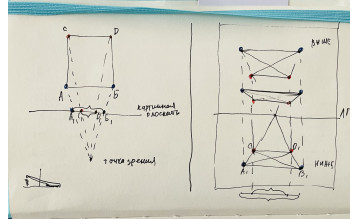 C D
A B
A₁ B₁
картинная
плоскость
точка зрения
выше
ЛГ
C₁ D₁
A₁ B₁
ниже